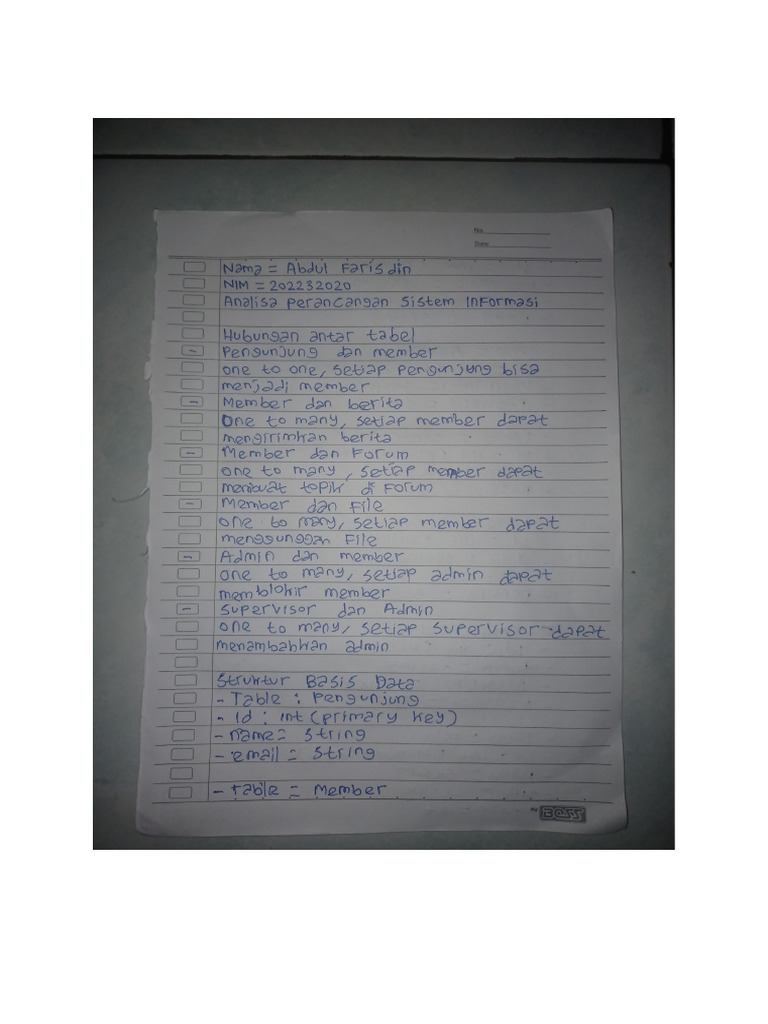 No.
Date
Nama = Abdul Farisdin
NIM = 202232020
Analisa Perancangan Sistem Informasi
Hubungan antar tabel
- Pengunjung dan member
one to one, setiap pengunjung bisa
menjadi member
- Member dan berita
One to many, setiap member dapat
mengirimkan berita
- Member dan Forum
one to many, setiap member dapat
membuat topik di Forum
- Member dan File
one to many, setiap member dapat
menggunggan File
- Admin dan member
one to many, setiap admin dapat
memblokir member
- Supervisor dan Admin
one to many, setiap supervisor dapat
menambahkan admin
Struktur Basis Data
- Table : Pengunjung
- Id : int (primary key)
- name = String
- email = String
- table = Member
BOSS